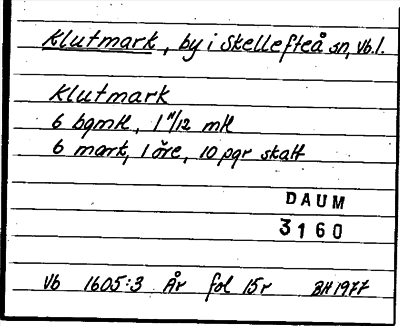 Klutmark, by i Skellefteå sn, Vb.l.
Klutmark
6 bgmk, 1 11/12 mk
6 mark, 1 öre, 10 pgr skatt
DAUM
3160
Vb 1605:3 År fol 15r BH 1977